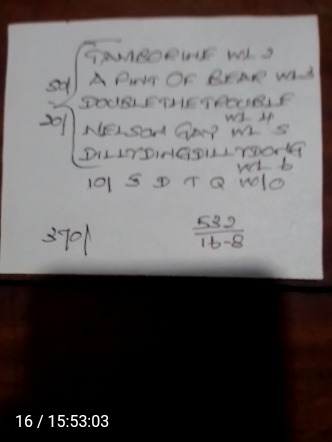 50/ TAMBORINE WL 2
A PINT OF BEAR WL 3
DOUBLETHETROUBLE
WL 4
20/ NELSON GAY WL 5
DILLYDINGDILLYDONG
WL 6
10/ S D T Q W/O
370/
532
16-8
16 / 15:53:03